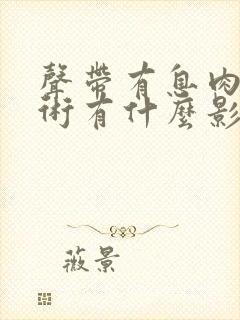 聲帶有息肉
術有什麼影
薇景